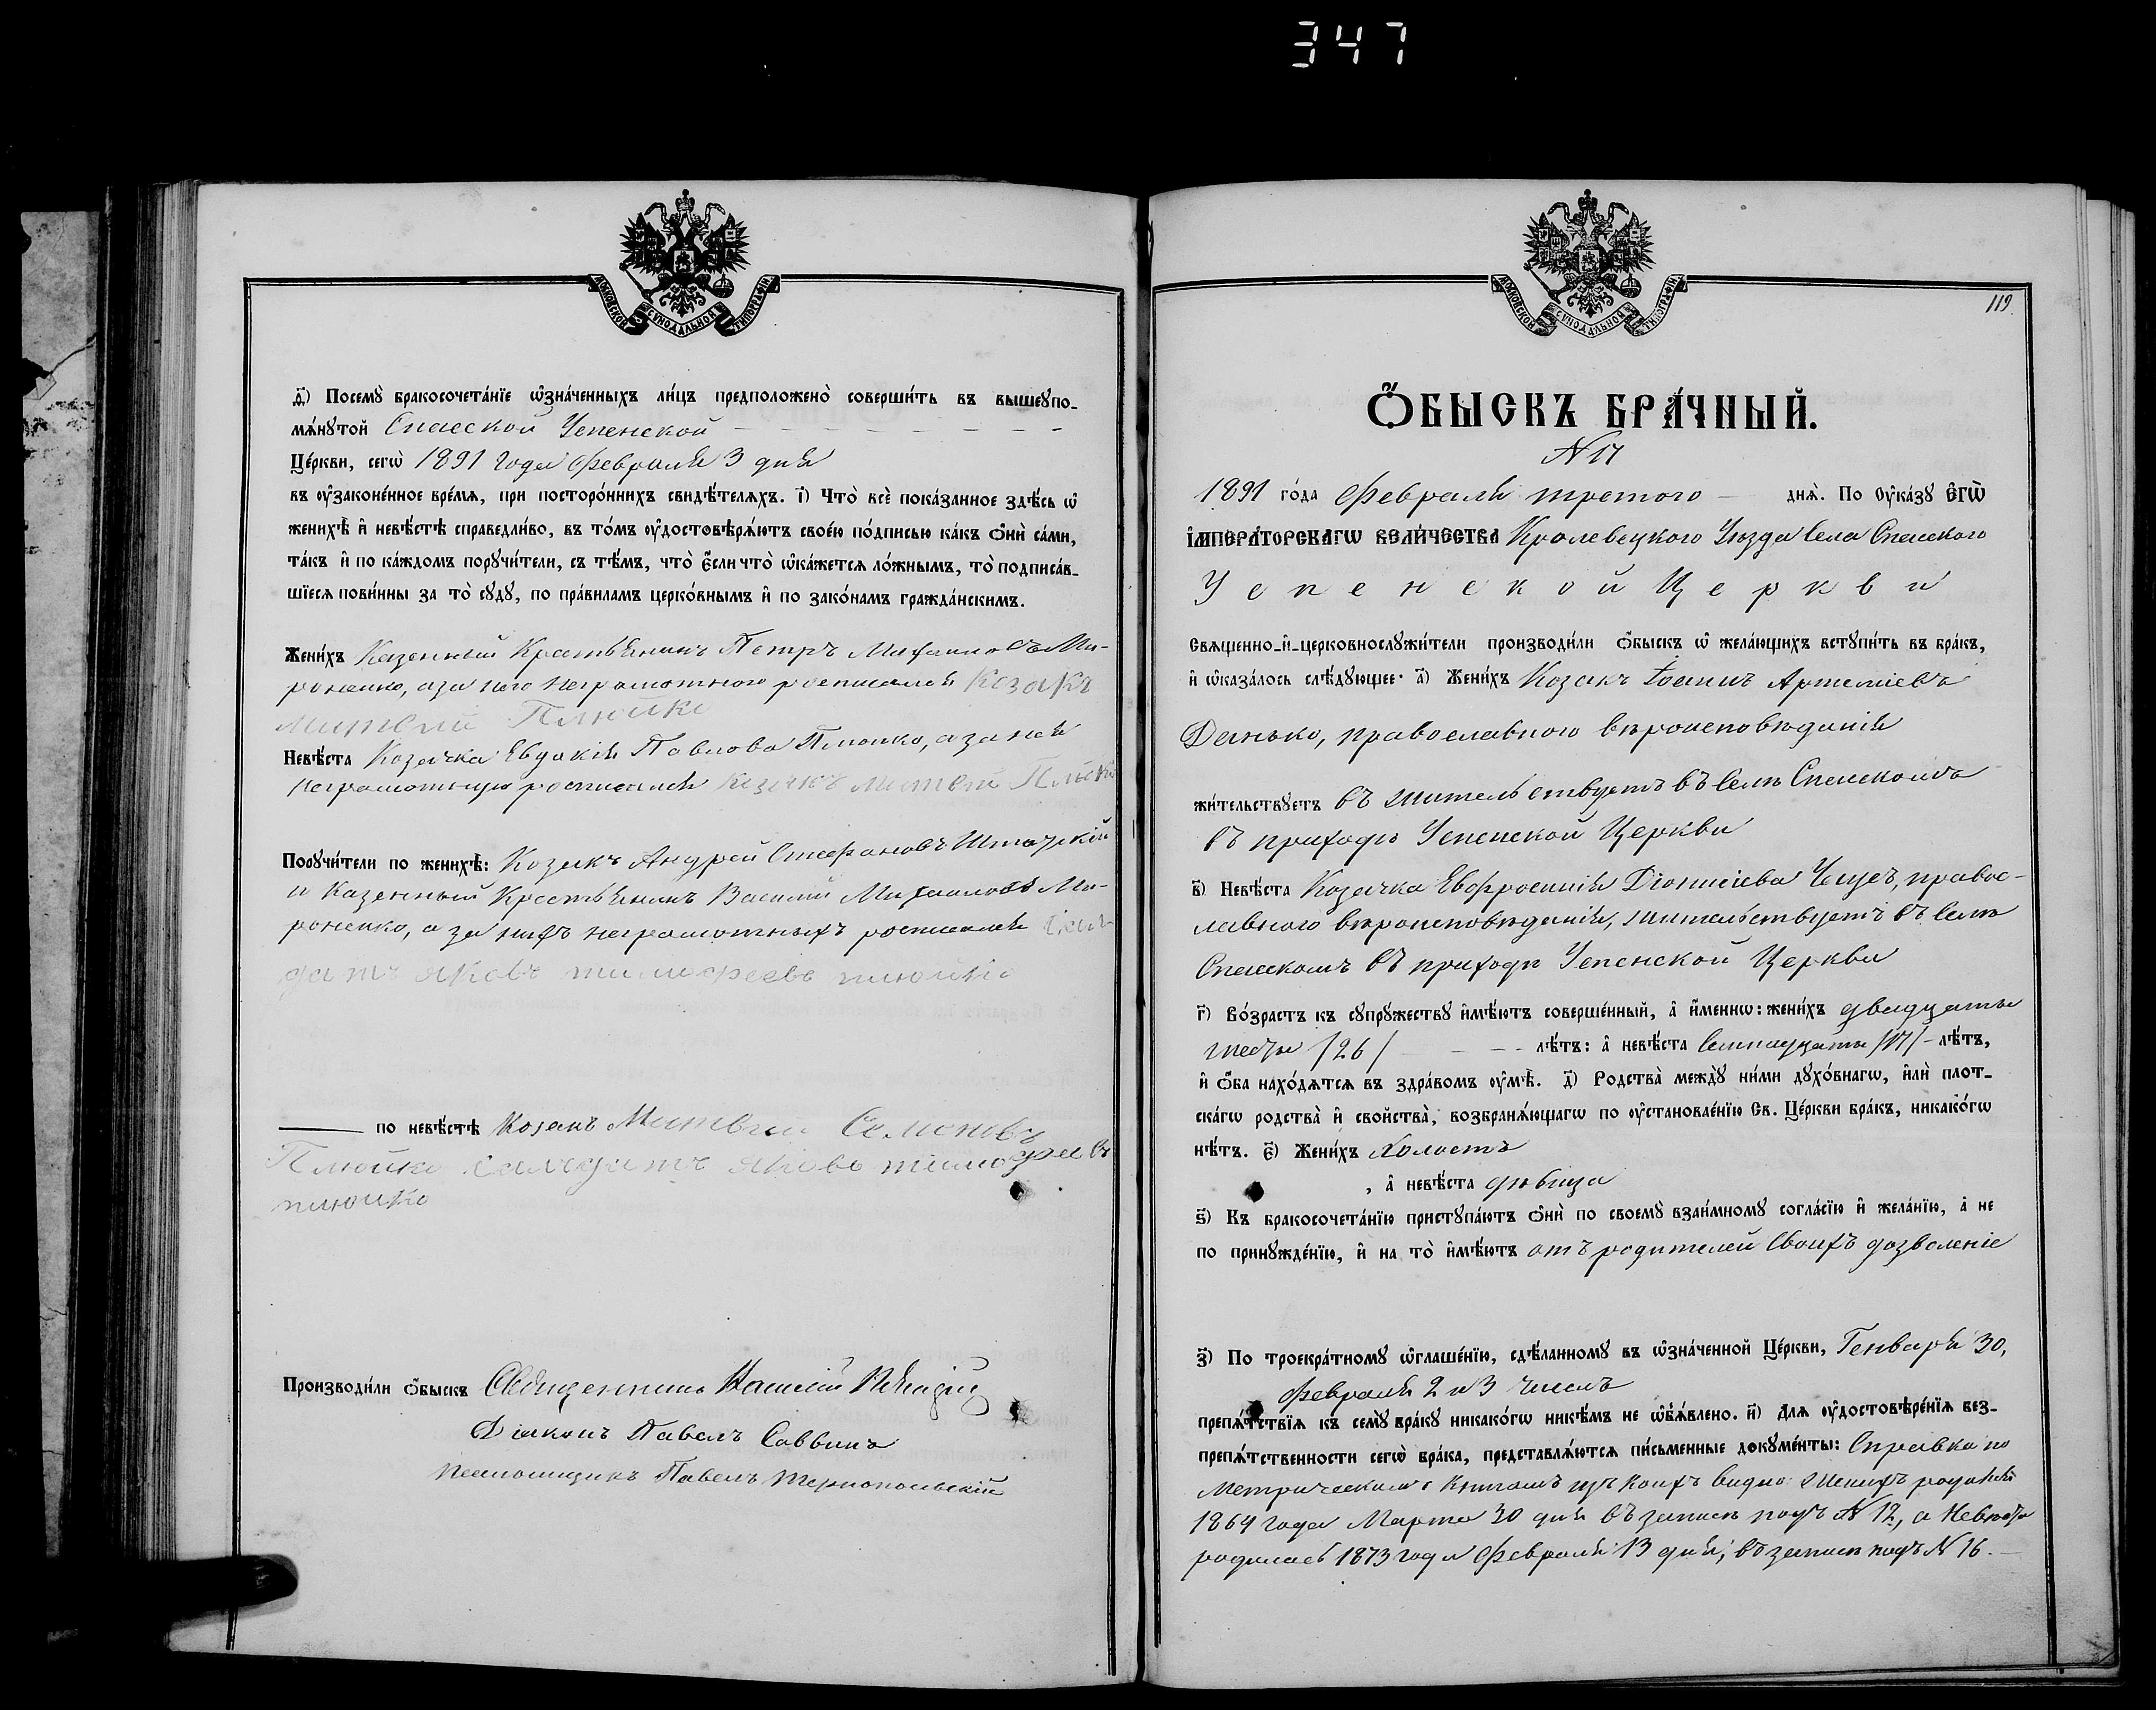 347
МОСКОВСКОЙ СѴНОДАЛЬНОЙ ТИПОГРАФІИ
ѳ҃) Посемꙋ̀ бракосочета́нїе ѡ҆зна́ченныхъ ли́цъ предположено̀ соверши́ть въ вышеꙋпо-
мѧ́нꙋтой Спасской Успенской
Це́ркви, сегѡ̀ 1891 года Февраля 3 дня
въ ᲂу҆законе́нное вре́мѧ, при посторо́ннихъ свидѣ́телѧхъ. і҃) Что̀ всѐ пока́занное здѣ́сь ѡ҆
женихѣ̀ и҆ невѣ́стѣ справедли́во, въ то́мъ ᲂу҆достовѣрѧ́ютъ свое́ю по́дписью ка́къ ѻ҆нѝ са́ми,
та́къ и҆ по ка́ждомъ порꙋчи́тели, съ тѣ́мъ, что̀ є҆́сли что̀ ѡ҆ка́жетсѧ ло́жнымъ, то̀ подписа́в-
шїесѧ пови́нны за то̀ сꙋдꙋ̀, по пра́виламъ церко́внымъ и҆ по зако́намъ гражда́нскимъ.
Жени́хъ Казенный Крестьянинъ Петръ Михаиловъ Ми-
роненко, а за него неграмотного росписался Козакъ
Митвей Плюйко
Невѣ́ста Козачка Евдокія Павлова Плюйко, а за неё
неграмотную росписался Козакъ Митвей Плюйко
Порꙋчи́тели по женихѣ̀: Козакъ Андрей Стефановъ
и Казенный Крестьянинъ Василій Михаиловъ Ми-
роненко, а за нихъ неграмотныхъ росписался Сал-
датъ Яковъ тимофеевъ плюйко
по невѣ́стѣ Козакъ Митвей Семоновъ
Плюйко салдатъ яковъ тимофеевъ
плюйко
Производи́ли ѻ҆́быскъ Священникъ Василій
Діаконъ Павелъ Саввинъ
Псаломщикъ Павелъ Тернопольскій
МОСКОВСКОЙ СѴНОДАЛЬНОЙ ТИПОГРАФІИ
119.
Ѻ҆́БЫСКЪ БРА́ЧНЫЙ.
N 17
1891 го́да Февраля третого днѧ̀. По Оу҆ка́зꙋ Є҆ГѠ̀
І҆МПЕРА́ТОРСКАГѠ ВЕЛИ́ЧЕСТВА Кролевецкого Уѣзда Села Спасского
Успенской Церкви
Свѧщенно-и҆-церковнослꙋжи́тели производи́ли ѻ҆́быскъ ѡ҆ жела́ющихъ встꙋпи́ть въ бра́къ,
и҆ ѡ҆каза́лось слѣ́дꙋющее: а҃) Жени́хъ Козакъ Іоаннъ Артеміевъ
Данько, православного вѣроисповѣданія
жи́тельствꙋетъ въ жительствуетъ въ Селѣ Спасскомъ
въ приходѣ Успенской Церкви
в҃) Невѣ́ста Козачка Евфросинія Діонисіева Чащъ, правос-
лавного вѣроисповѣданія, жительствуетъ въ Селѣ
Спасскомъ въ приходѣ Успенской Церкви
г҃) Во́зрастъ къ сꙋпрꙋ́жествꙋ и҆мѣ́ютъ соверше́нный, а҆ и҆́меннѡ: жени́хъ двадцать
шесть /26/ лѣ́тъ: а҆ невѣ́ста Семнадцать /17/ - лѣ́тъ,
и҆ ѻ҆́ба нахо́дѧтсѧ въ здра́вомъ ᲂу҆мѣ̀. д҃) Родства̀ междꙋ̀ ни́ми дꙋхо́внагѡ, и҆лѝ плот-
ска́гѡ родства̀ и҆ сво́йства̀, возбранѧ́ющагѡ по ᲂу҆становле́нїю Св. Це́ркви бра́къ, никако́гѡ
нѣ́тъ. є҃) Жени́хъ Холостъ
, а҆ невѣ́ста дѣвица
ѕ҃) Къ бракосочета́нїю пристꙋпа́ютъ ѻ҆нѝ по своемꙋ̀ взаи́мномꙋ согла́сїю и҆ жела́нїю, а҆ не
по принꙋжде́нїю, и҆ на то̀ и҆мѣ́ютъ отъ родителей своихъ дозволеніе
з҃) По троекра́тномꙋ ѡ҆глаше́нїю, сдѣ́ланномꙋ въ ѡ҆зна́ченной Це́ркви, Генваря 30,
Февраля 2 и 3 числъ
препѧ́тствїѧ къ семꙋ̀ бра́кꙋ никако́гѡ никѣ́мъ не ѡ҆б̾ѧ́влено. и҃) Длѧ ᲂу҆достовѣре́нїѧ без-
препѧ́тственности сегѡ̀ бра́ка, представлѧ́ютсѧ пи́сьменные докꙋме́нты: Справка по
Метрическимъ Книгамъ изъ коихъ видно: Женихъ родился
1864 года Марта 30 дня въ записи подъ N 12, а Невѣста
родилась 1873 года Февраля 13 дня, въ записи подъ N 16.